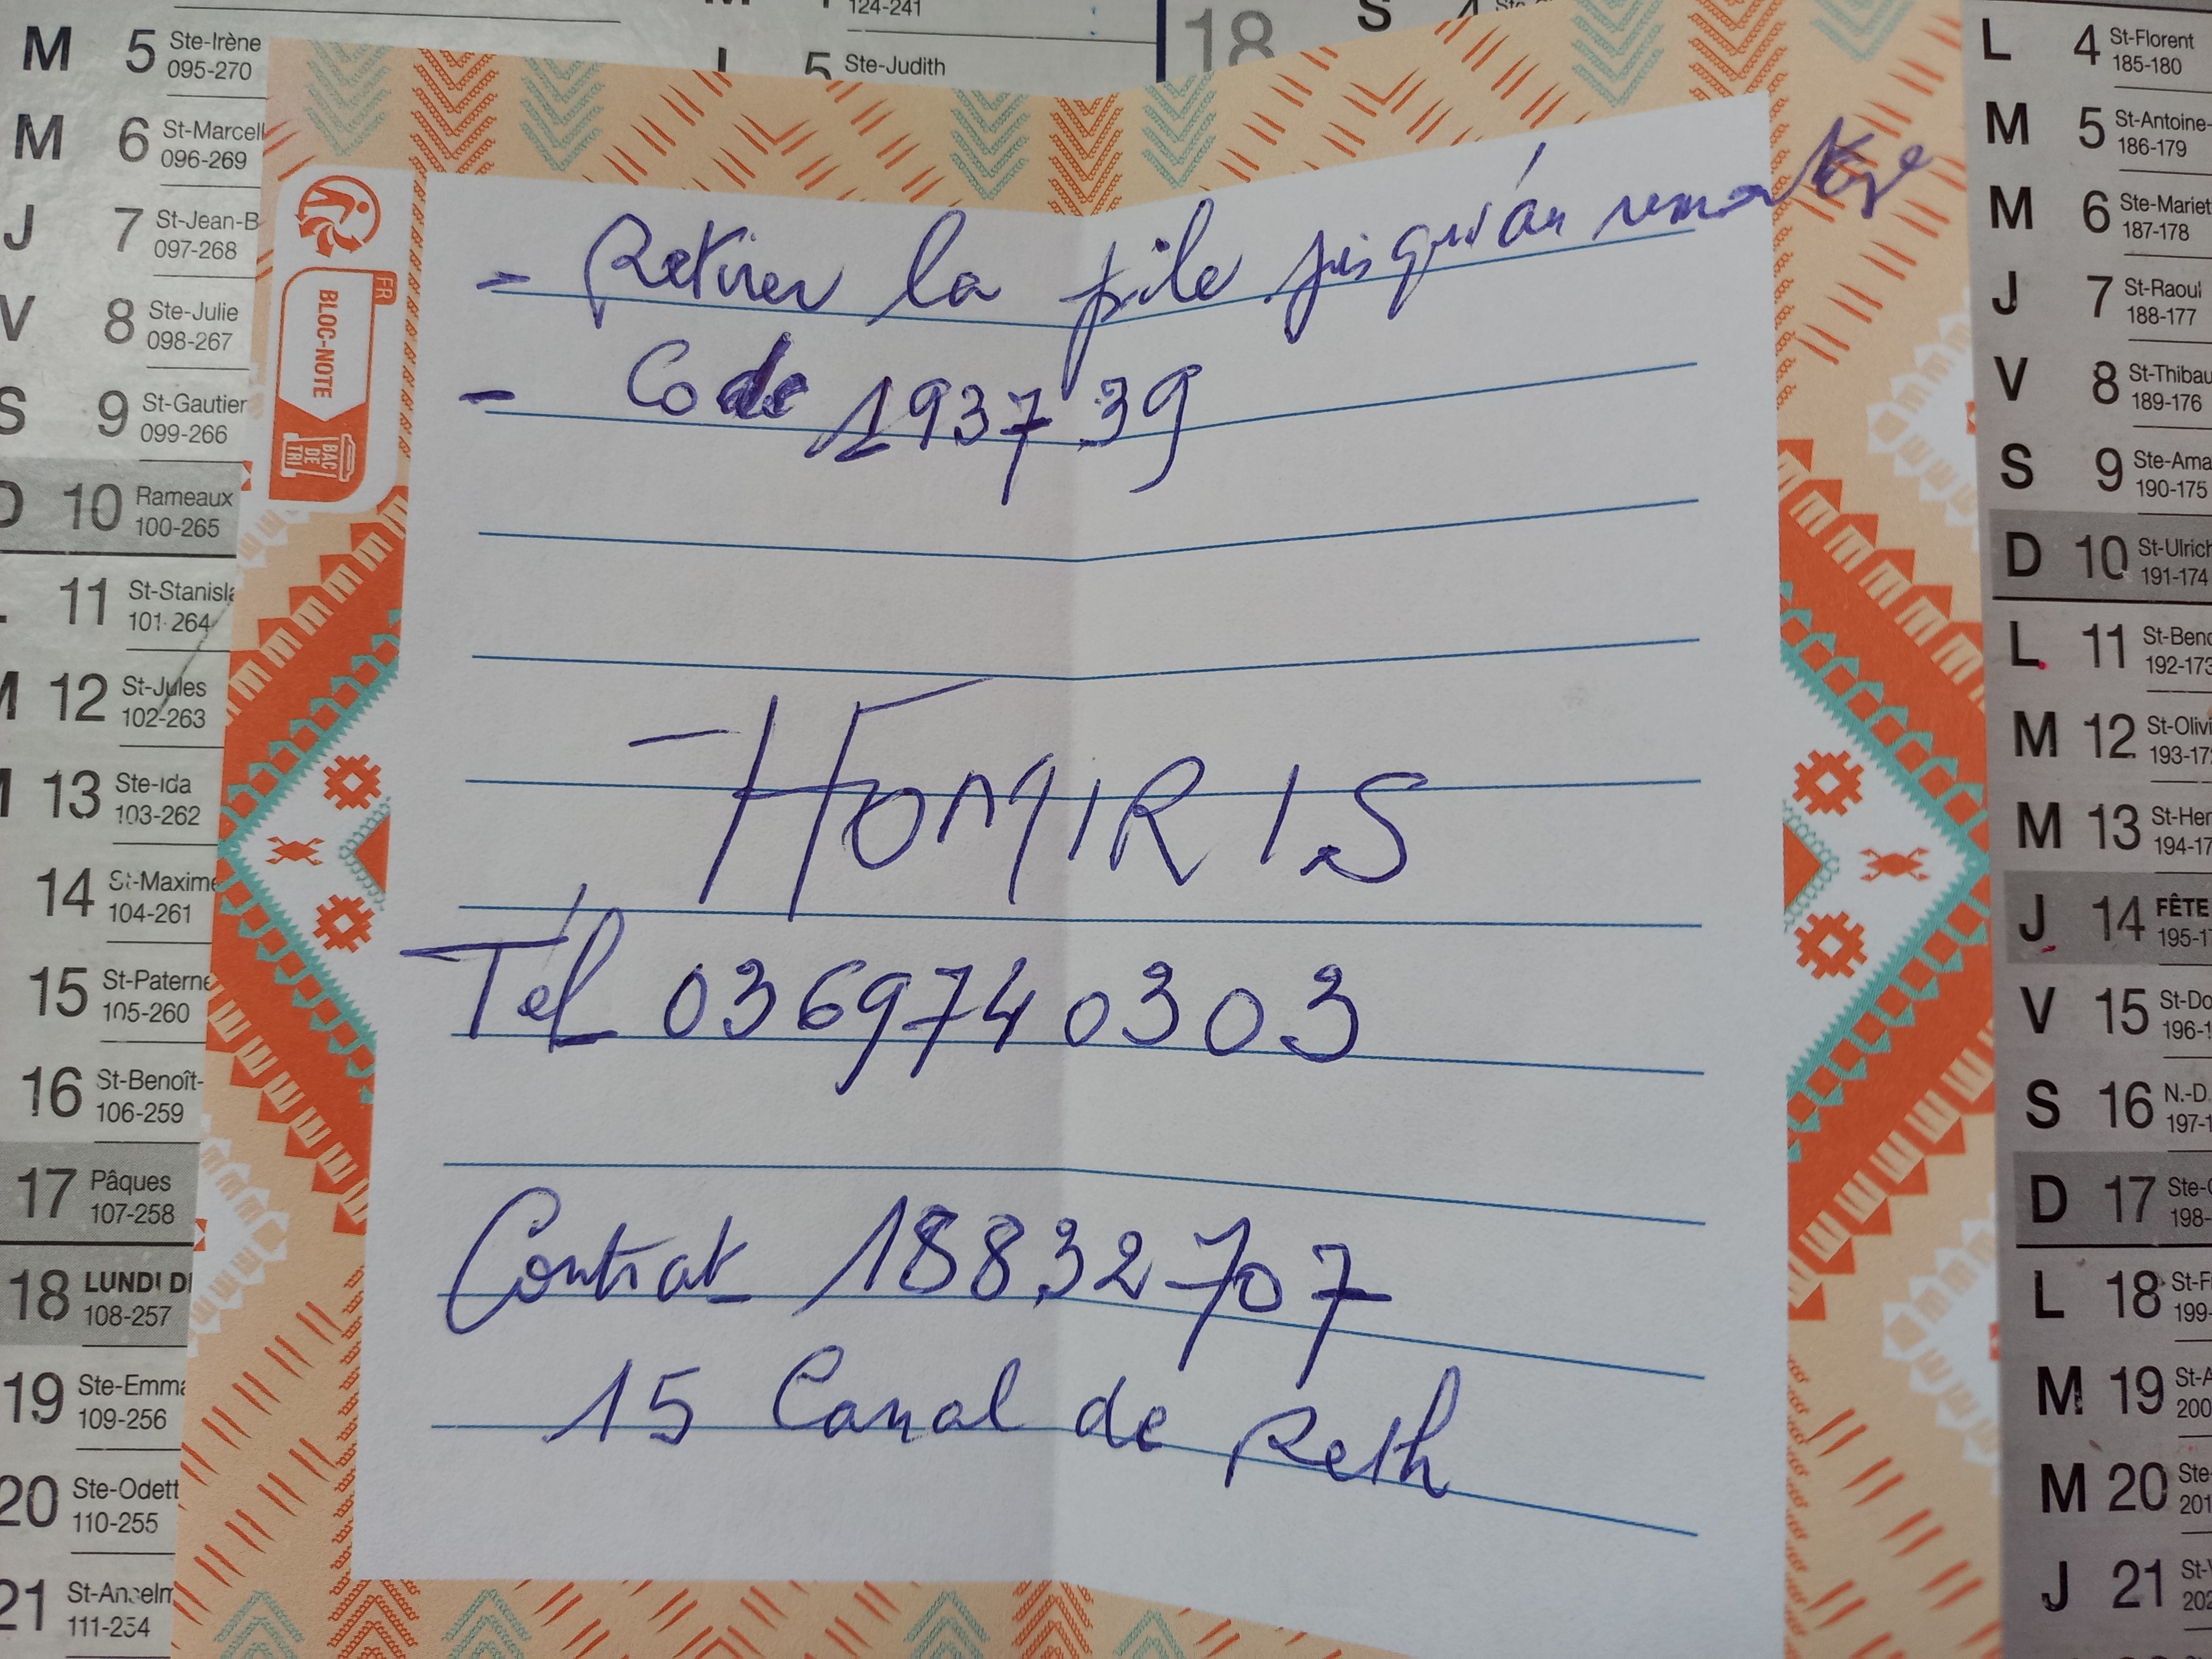 M 5 Ste-Irène
095-270
M 6 St-Marcell
096-269
J 7 St-Jean-B
097-268
V 8 Ste-Julie
098-267
S 9 St-Gautier
099-266
D 10 Rameaux
100-265
11 St-Stanisla
101-264
M 12 St-Jules
102-263
13 Ste-Ida
103-262
14 St-Maxime
104-261
15 St-Paterne
105-260
16 St-Benoît-
106-259
17 Pâques
107-258
18 LUNDI DE
108-257
19 Ste-Emma
109-256
20 Ste-Odett
110-255
21 St-Anselm
111-254
124-241
5 Ste-Judith
18
S 4
FR
BLOC-NOTE
BAC
DE
TRI
- Retirer la pile jusqu'au
- Code 193739
- HOMIRIS
Tél 0369740303
Contrat 18832707
15 Canal de Reth
L 4 St-Florent
185-180
M 5 St-Antoine-
186-179
M 6 Ste-Mariet
187-178
J 7 St-Raoul
188-177
V 8 St-Thibau
189-176
S 9 Ste-Ama
190-175
D 10 St-Ulrich
191-174
L 11 St-Beno
192-173
M 12 St-Olivi
193-172
M 13 St-Hen
194-17
J 14 FÊTE
195-17
V 15 St-Do
196-1
S 16 N.-D.
197-1
D 17 Ste-C
198-
L 18 St-F
199-
M 19 St-A
200
M 20 Ste-
201
J 21 St-V
202